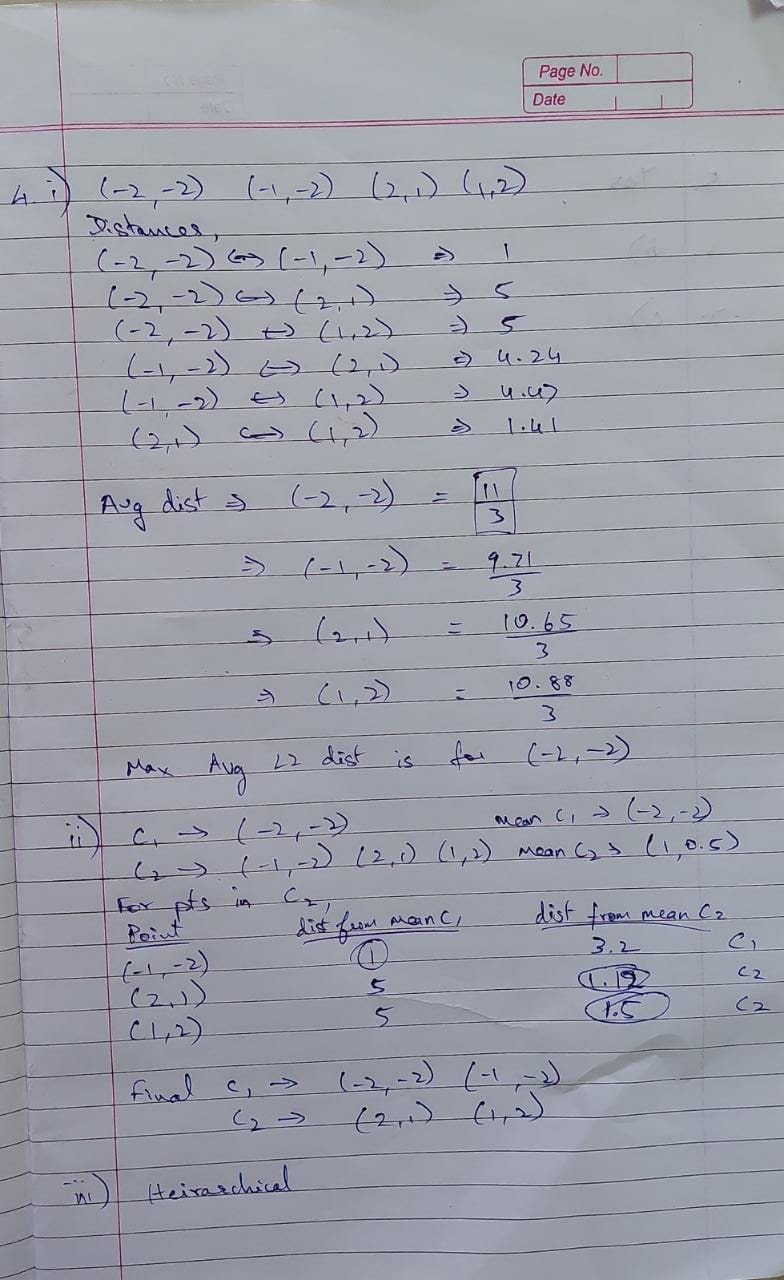 Page No.
Date
4. i) (-2,-2) (-1,-2) (2,1) (1,2)
Distances,
(-2,-2) ↔ (-1,-2) ⇒ 1
(-2,-2) ↔ (2,1) ⇒ 5
(-2,-2) ↔ (1,2) ⇒ 5
(-1,-2) ↔ (2,1) ⇒ 4.24
(-1,-2) ↔ (1,2) ⇒ 4.47
(2,1) ↔ (1,2) ⇒ 1.41
Avg dist ⇒ (-2,-2) = 11/3
⇒ (-1,-2) = 9.71/3
⇒ (2,1) = 10.65/3
⇒ (1,2) = 10.88/3
Max Avg L2 dist is for (-2,-2)
ii) C1 → (-2,-2) mean C1 → (-2,-2)
C2 → (-1,-2) (2,1) (1,2) mean C2 → (1,0.5)
For pts in C2,
Point dist from mean C1 dist from mean C2
(-1,-2) 1 3.2 C1
(2,1) 5 1.12 C2
(1,2) 5 1.5 C2
Final C1 → (-2,-2) (-1,-2)
C2 → (2,1) (1,2)
iii) Heirarchical